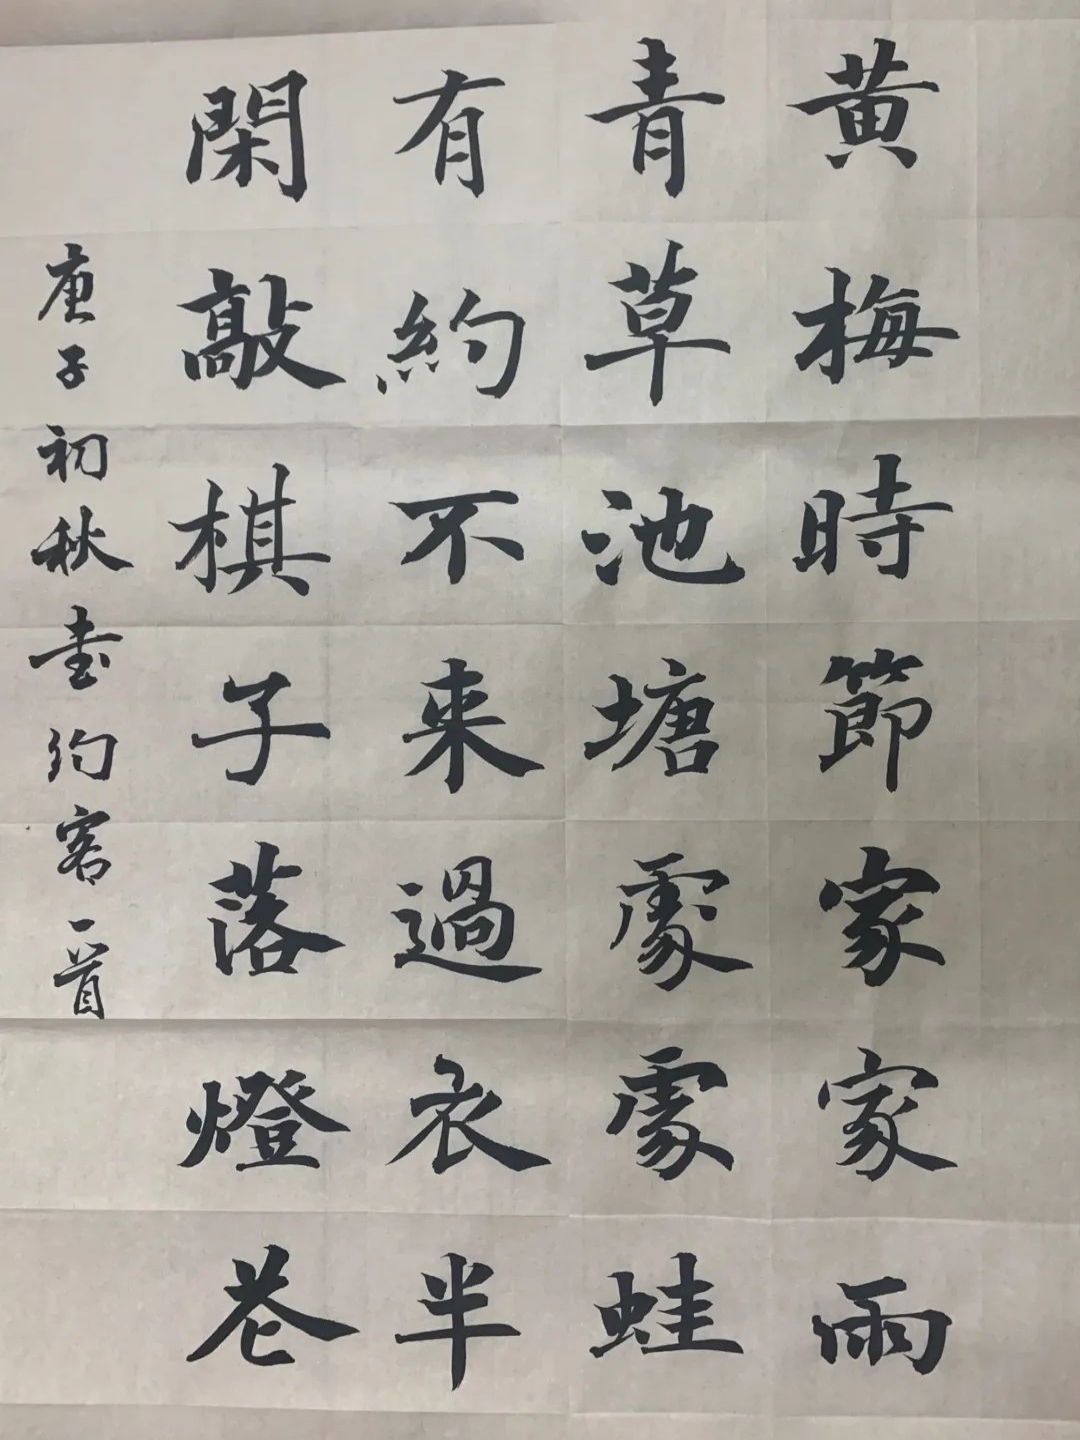 黄梅時節家家雨
青草池塘處處蛙
有約不來過夜半
閑敲棋子落燈花
庚子初秋書約客一首